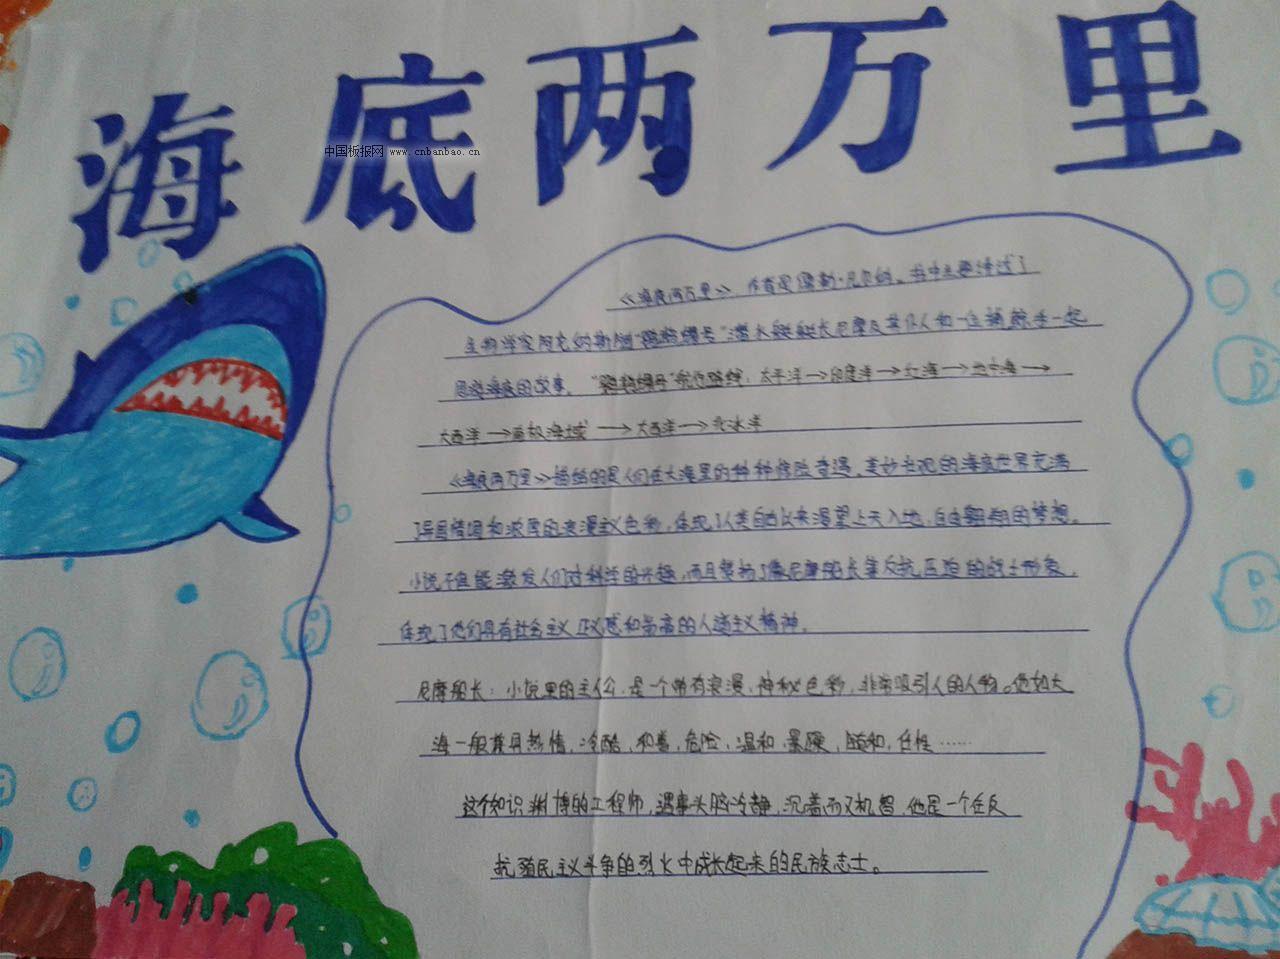 海底两万里
中国板报网 www.cnbanbao.cn
《海底两万里》,作者是儒勒·凡尔纳。书中主要讲述了
生物学家阿龙纳斯随“鹦鹉螺号”潜水艇艇长尼摩及其仆人和一位捕鲸手一起
周游海底的故事。“鹦鹉螺号”航行路线:太平洋→印度洋→红海→地中海→
大西洋→南极海域→大西洋→北冰洋
《海底两万里》描绘的是人们在大海里的种种惊险奇遇。美妙壮观的海底世界充满
了异国情调和浓厚的浪漫主义色彩,体现了人类自古以来渴望上天入地、自由翱翔的梦想。
小说不但能激发人们对科学的兴趣,而且赞扬了像尼摩船长等反抗压迫的战士形象,
体现了他们具有社会主义正义感和崇高的人道主义精神。
尼摩船长:小说里的主人公,是一个带有浪漫,神秘色彩,非常吸引人的人物。他如大
海一般兼具热情,冷酷,和善,危险,温和,暴戾,随和,任性……
这个知识渊博的工程师,遇事头脑冷静,沉着而又机智,他是一个在反
抗殖民主义斗争的烈火中成长起来的民族志士。